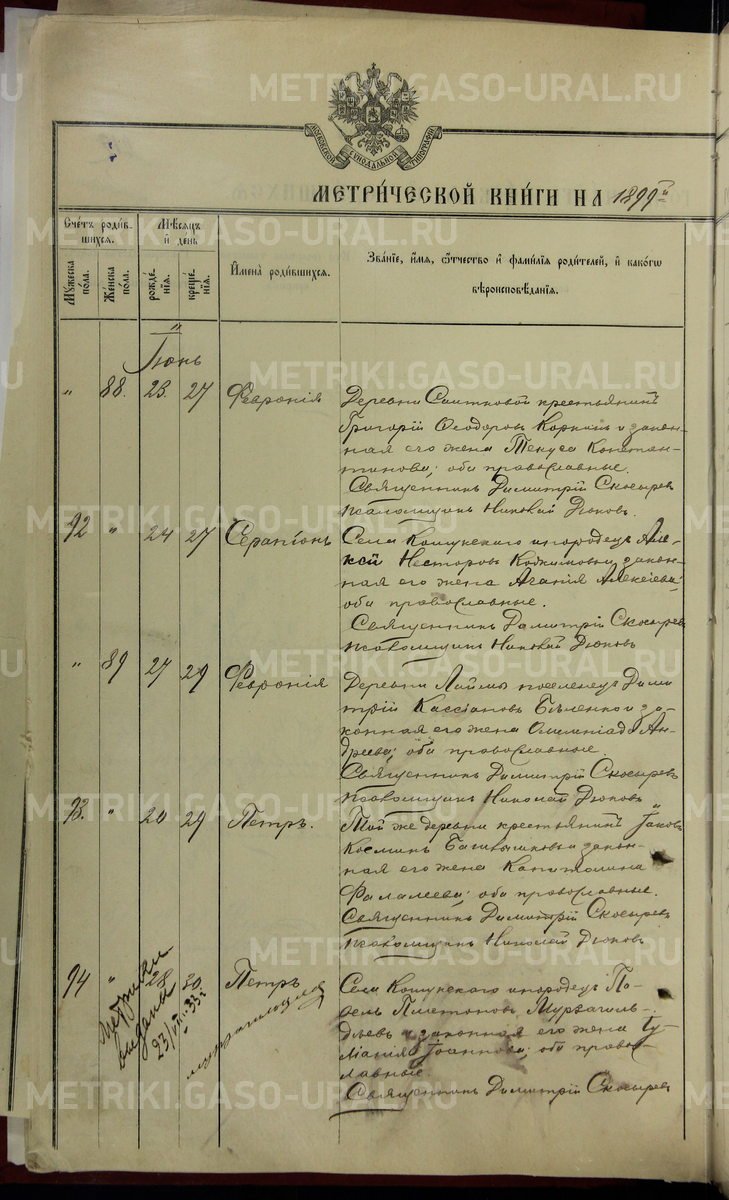 МОСКОВСКОЙ СУНОДАЛЬНОЙ ТИПОГРАФИИ
МЕТРИ́ЧЕСКОЙ КНИ́ГИ НА 1899 й
Сче́тъ роди́вшихся.
Мѣ́сяцъ и҆ день
Мꙋ́жеска по́ла.
Же́нска по́ла.
рожде́нїѧ.
креще́нїѧ.
И҆мена̀ роди́вшихся.
Зва́нїе, и҆́мѧ, ѻ҆́тчество и҆ фами́лїѧ роди́телей, и҆ како́гѡ вѣроисповѣ́данїѧ.
Іюнь
" 88. 23. 27 Февронія
Деревни Саитковой крестьянинъ
Григорій Ѳеодоровъ Коркинъ и закон-
ная его жена Текуса Констан-
тинова; оба православные.
Священникъ Димитрій Скосыревъ
Псаломщикъ Николай Дюковъ.
92 " 24 27 Серапіонъ
Села Кошукскаго инородецъ Але-
ксѣй Несторовъ и закон-
ная его жена Агапія Алексіева;
оба православные.
Священникъ Димитрій Скосыревъ
Псаломщикъ Николай Дюковъ
" 89 27 29 Февронія
Деревни Лаймы поселенецъ Дими-
трій Кассіановъ Бѣленко и за-
конная его жена Олимпіада Ан-
дреева; оба православные.
Священникъ Димитрій Скосыревъ
Псаломщикъ Николай Дюковъ
93. " 20 29 Петръ.
Той же деревни крестьянинъ Іаковъ
Косминъ и закон-
ная его жена Капитолина
Фалалеева; оба православные.
Священникъ Димитрій Скосыревъ
Псаломщикъ Николай Дюковъ
94 " 28 30. Петръ
Села Кошукскаго инородецъ Па-
велъ Платоновъ Мурзагиль-
дѣевъ и законная его жена Іу-
ліанія Іоаннова; оба право-
славные.
Священникъ Димитрій Скосыревъ
Метрики
выдана
23/VII 33 г
METRIKI.GASO-URAL.RU